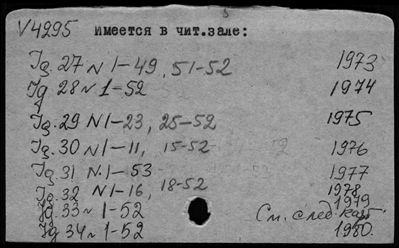 V4295 имеется в чит.зале:
Jg. 27 N 1-49, 51-52 1973
Jg 28 N 1-52 1974
Jg. 29 N 1-23, 25-52 1975
Jg. 30 N 1-11, 15-52 1976
Jg. 31 N. 1-53 1977
Jg. 32 N 1-16, 18-52 1978
Jg. 33 N 1-52 1979
См. след. карт
Jg 34 N 1-52 1980.